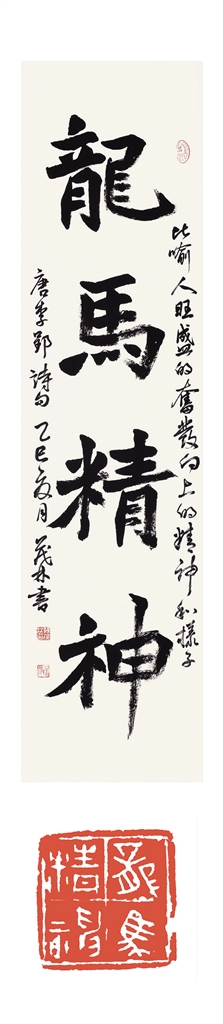 龍馬精神
比喻人旺盛的奮發向上的精神和樣子
唐李郢詩句 乙巳夏月 茂林書
龍馬
精神